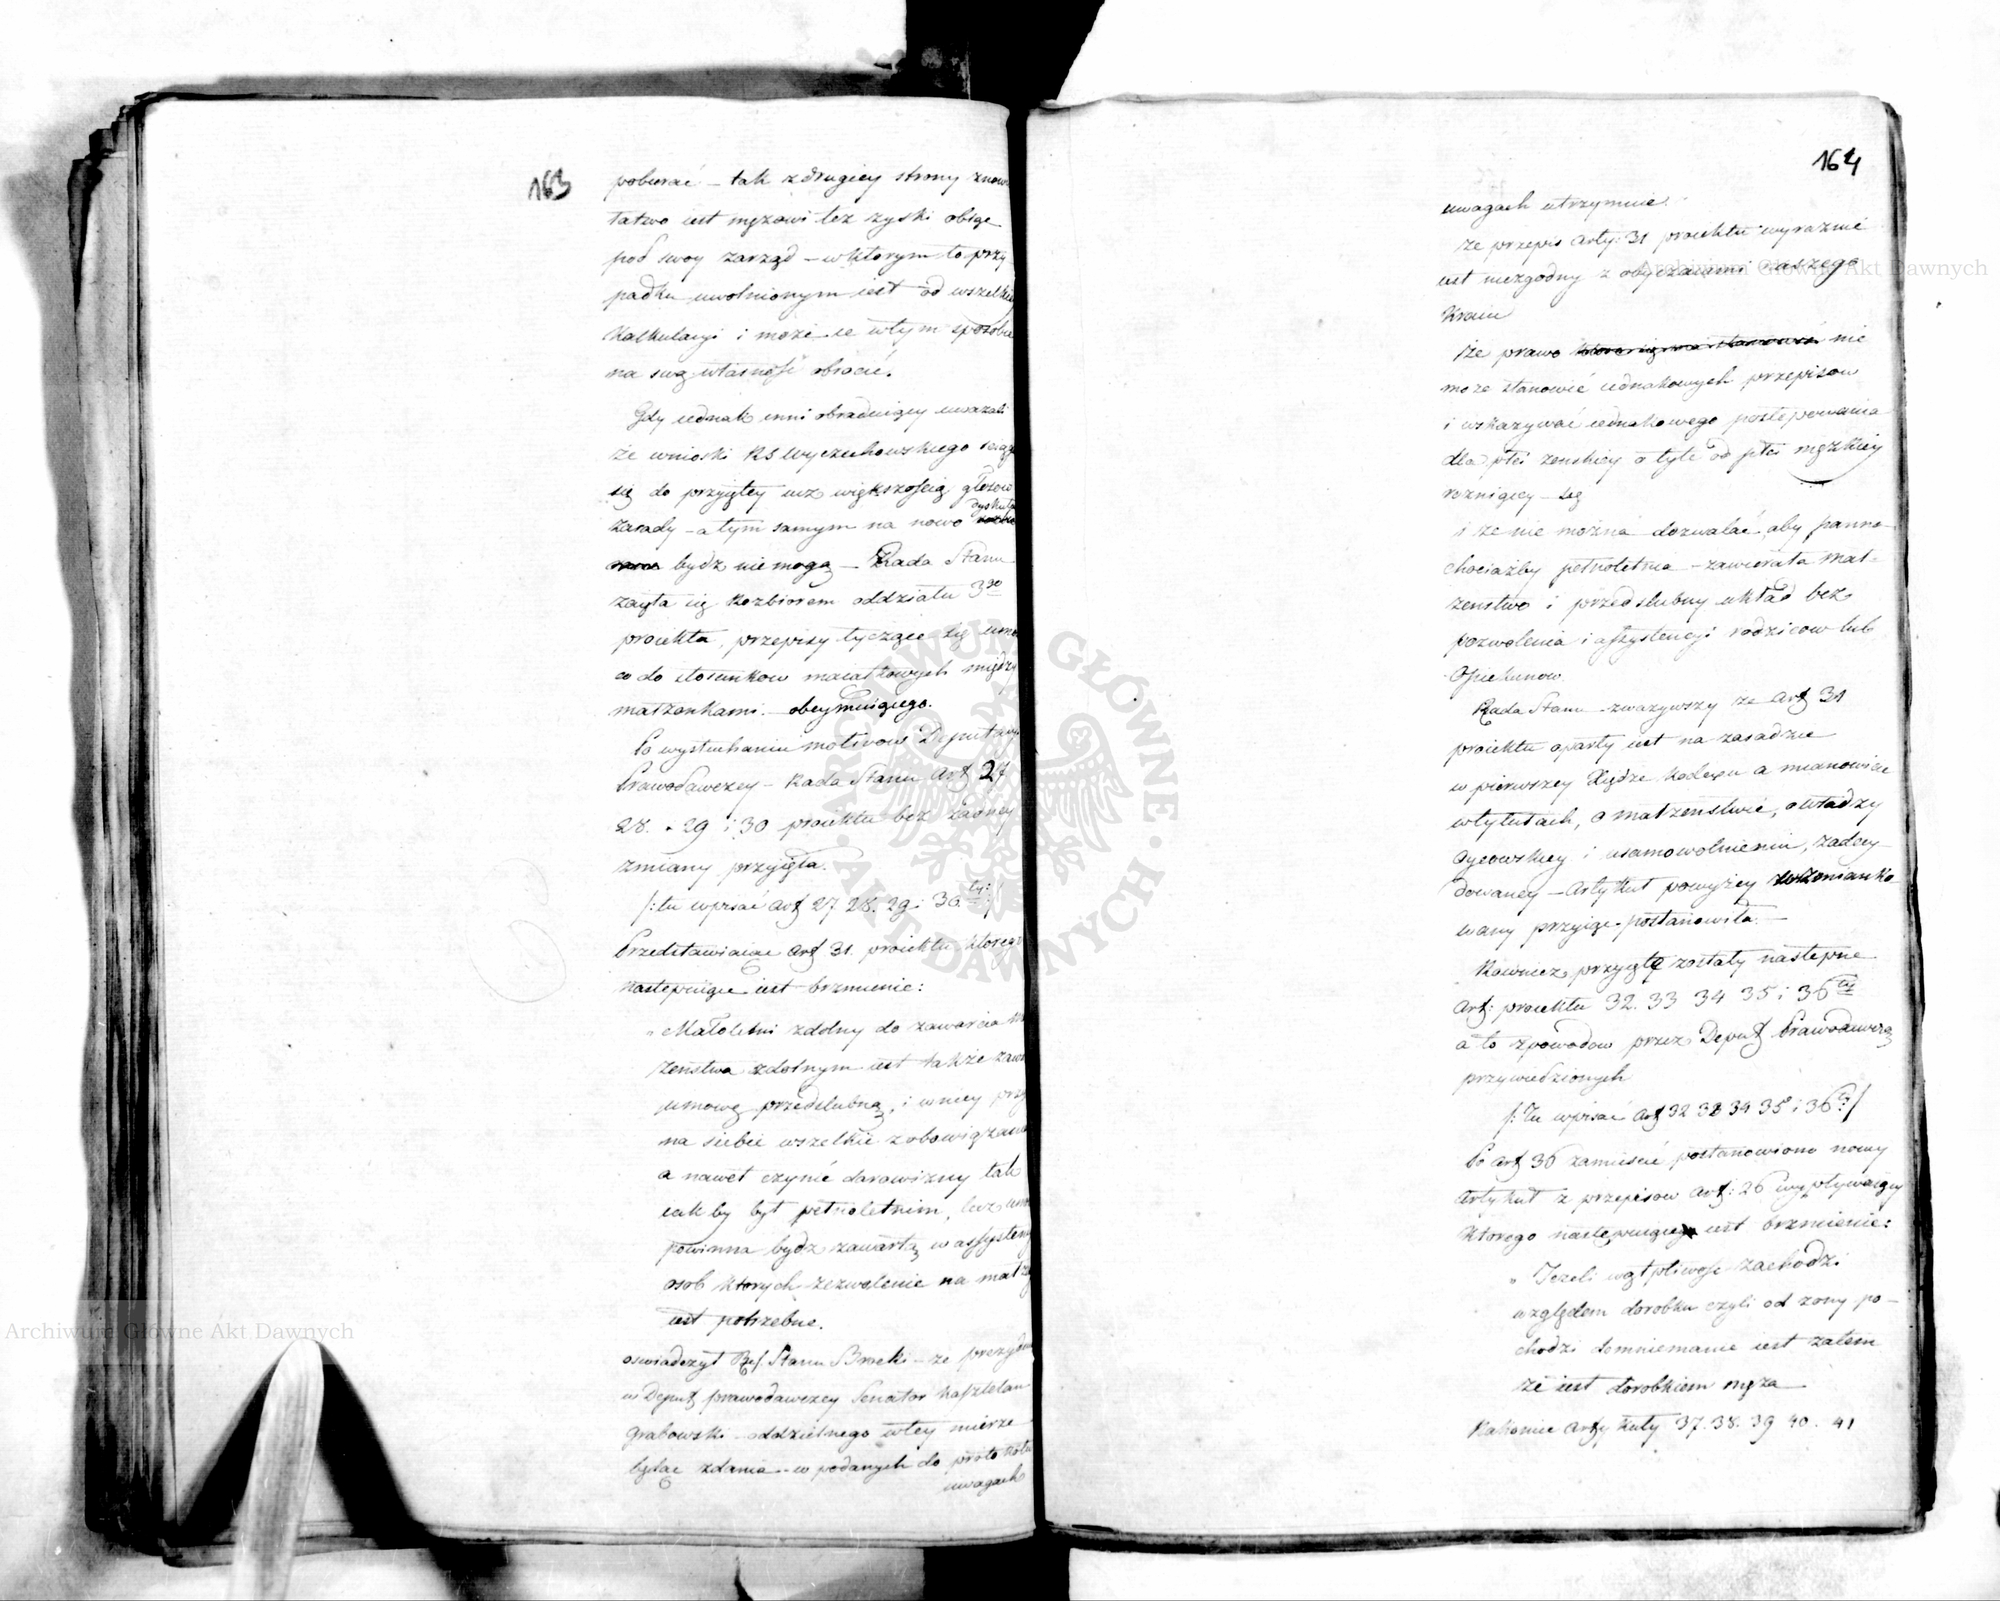 163
pobierać – tak z drugiey strony znow
łatwo iest mężowi też zyski obiąć
pod swoy zarząd – w ktorym to przy
padku uwolnionym iest od wszelkiey
Kalkulacyi i może ie w tym sposobie
na swą własność obrócić.
Gdy iednak inni obraduiący uważali
że wnioski RS Wyczechowskiego ściąga
się do przyiętey iuż większością głosow
zasady – a tym samym na nowo dyskut
bydź nie mogą – Rada Stanu
zaięła się Rozbiorem oddziału 3go
proiektu, przepisy tyczące się umow
co do stosunkow maiątkowych między
małżonkami obeymuiącego.
Po wysłuchaniu motivow Deputacyi
Prawodawczey – Rada Stanu Art 27
28. 29 i 30 proiektu bez żadney
zmiany przyięła.
/: tu wpisać art 27 28. 29 i 30ty :/
Przedstawiaiąc art 31. proiektu ktorego
następuiące iest brzmienie:
„Małoletni zdolny do zawarcia mał
żeństwa zdolnym iest także zawrz
umowę przedślubną, i w niey przy
na siebie wszelkie zobowiązania
a nawet czynić darowizny tak
iak by był pełnoletnim, lecz umo
powinna bydź zawartą w assystency
osob ktorych zezwolenie na małże
iest potrzebne.
oświadczył Ref. Stanu Brocki – że prezyduj
w Deput prawodawczey Senator Kasztelan
Grabowski – oddzielnego w tey mierze
będąc zdania – w podanych do protokołu
uwagach
164
uwagach utrzymuie.
że przepis arty: 31 proiektu wyraźnie
iest niezgodny z obyczaiami naszego
Kraiu
że prawo nie
może stanowić iednakowych przepisow
i wskazywać iednakowego postępowania
dla płci żeńskiey o tyle od płci męzkiey
rożniącey – się
i że nie można dozwalać, aby panna
chociażby pełnoletnia – zawierała mał-
żeństwo i przedślubny układ bez
pozwolenia i assystencyi rodzicow lub
Opiekunow.
Rada Stanu – zważywszy że art 31
proiektu oparty iest na zasadzie
w pierwszey Xiędze Kodexu a mianowicie
w tytułach, o małżeństwie, o władzy
oycowskiey i usamowolnieniu, zadecy-
dowaney – Artykuł powyżey wzmianko
wany przyiąć postanowiła. –
Rownież przyięte zostały następne
Art: proiektu 32. 33 34 35 i 36ty
a to z powodow przez Deput Prawodawczą
przywiedzionych
/: Tu wpisać art 32 33 34 35 i 36 :/
Po art 36 zamieścić postanowiono nowy
Artykuł z przepisow art: 26 wypływaiący
ktorego następuiące iest brzmienie:
„Jeżeli wątpliwość zachodzi
względem dorobku czyli od żony po-
chodzi domniemanie iest zatem
że iest dorobkiem męża
Nakoniec artykuły 37. 38. 39 40. 41
Archiwum Główne Akt Dawnych
Archiwum Główne Akt Dawnych
ARCHIWUM GŁÓWNE · AKT DAWNYCH ·